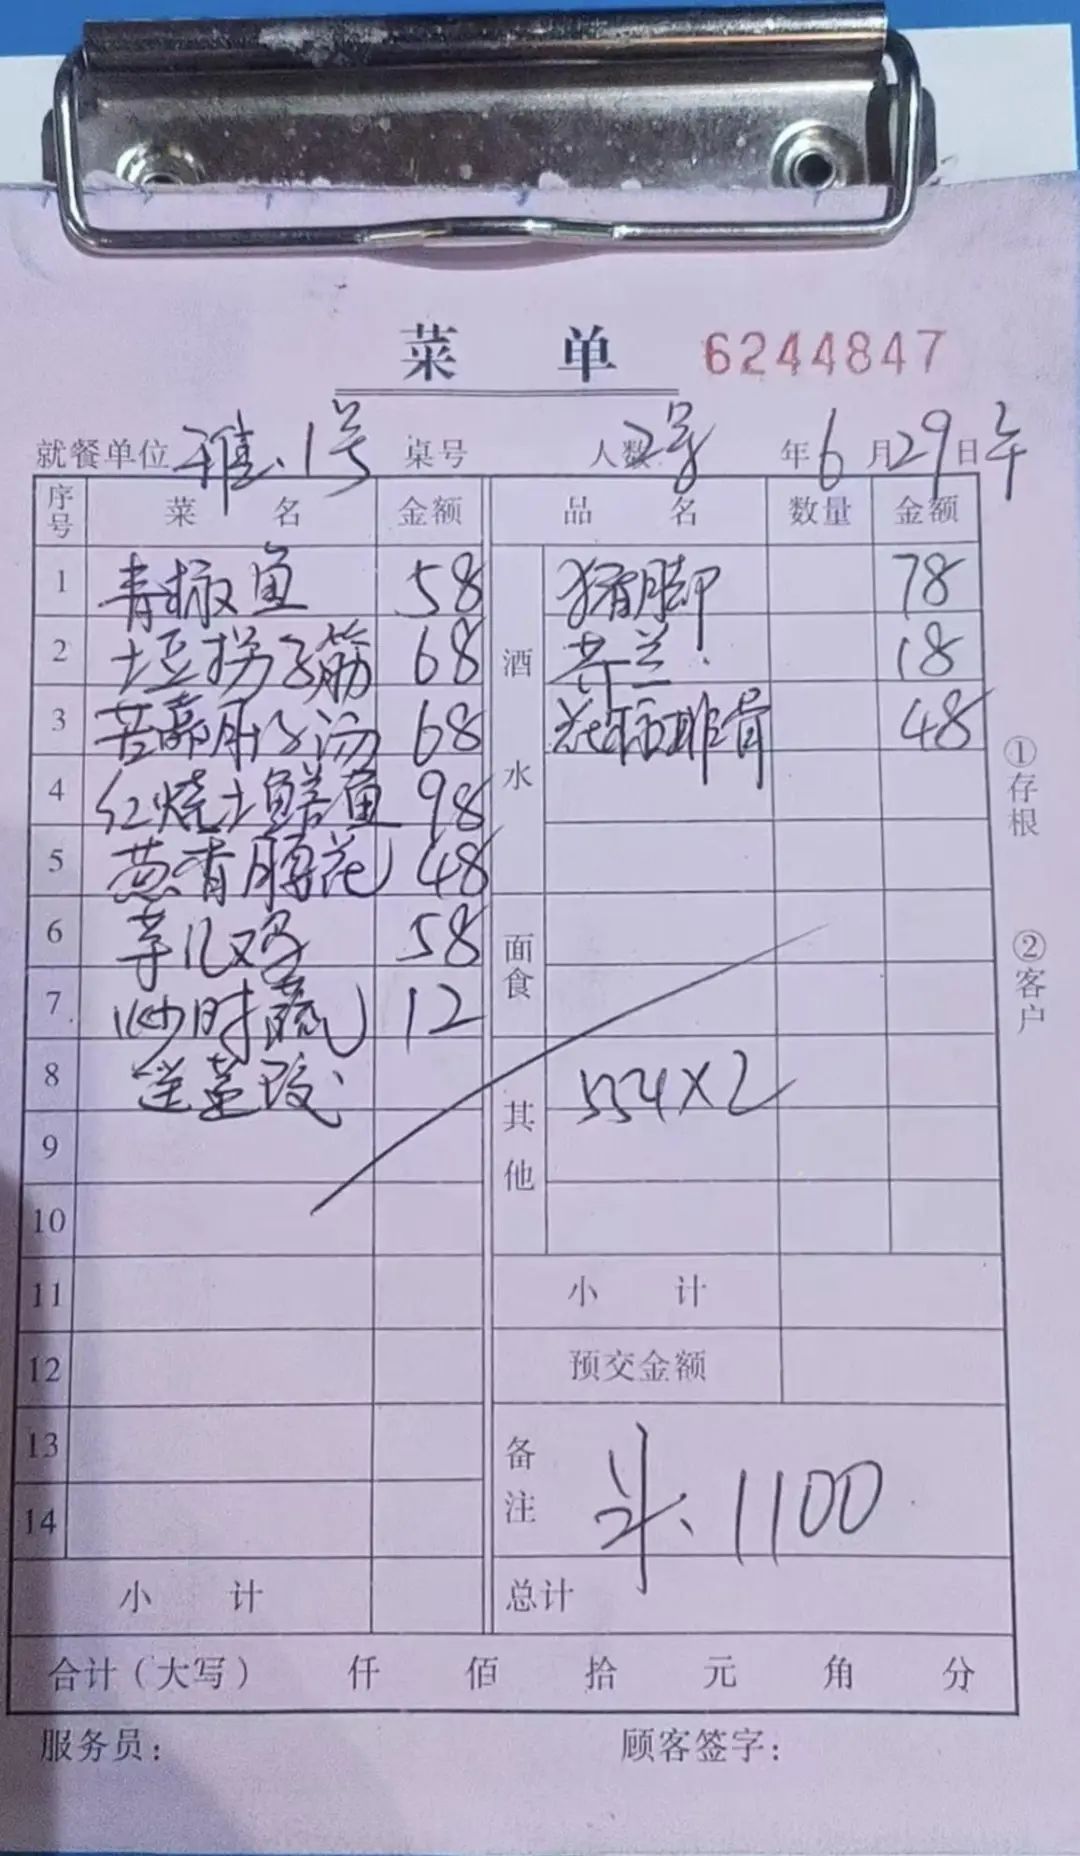 菜 单 6244847
就餐单位 雅、1号 桌号 人数 2号 年 6 月 29 日 午
序号 菜 名 金额 品 名 数量 金额
1 青椒鱼 58 猪脚 78
2 土豆拐子筋 68 芥兰 18
3 苦藠肚子汤 68 排骨 48
4 红烧土鳝鱼 98
酒水
5 葱香腰花 48
6 芋儿鸡 58
面食
7 炒时蔬 12
8 554×2
其他
9
10
11 小 计
12 预交金额
13
14
备注 斗、1100
小 计 总计
合计（大写） 仟 佰 拾 元 角 分
服务员： 顾客签字：
①存根
②客户